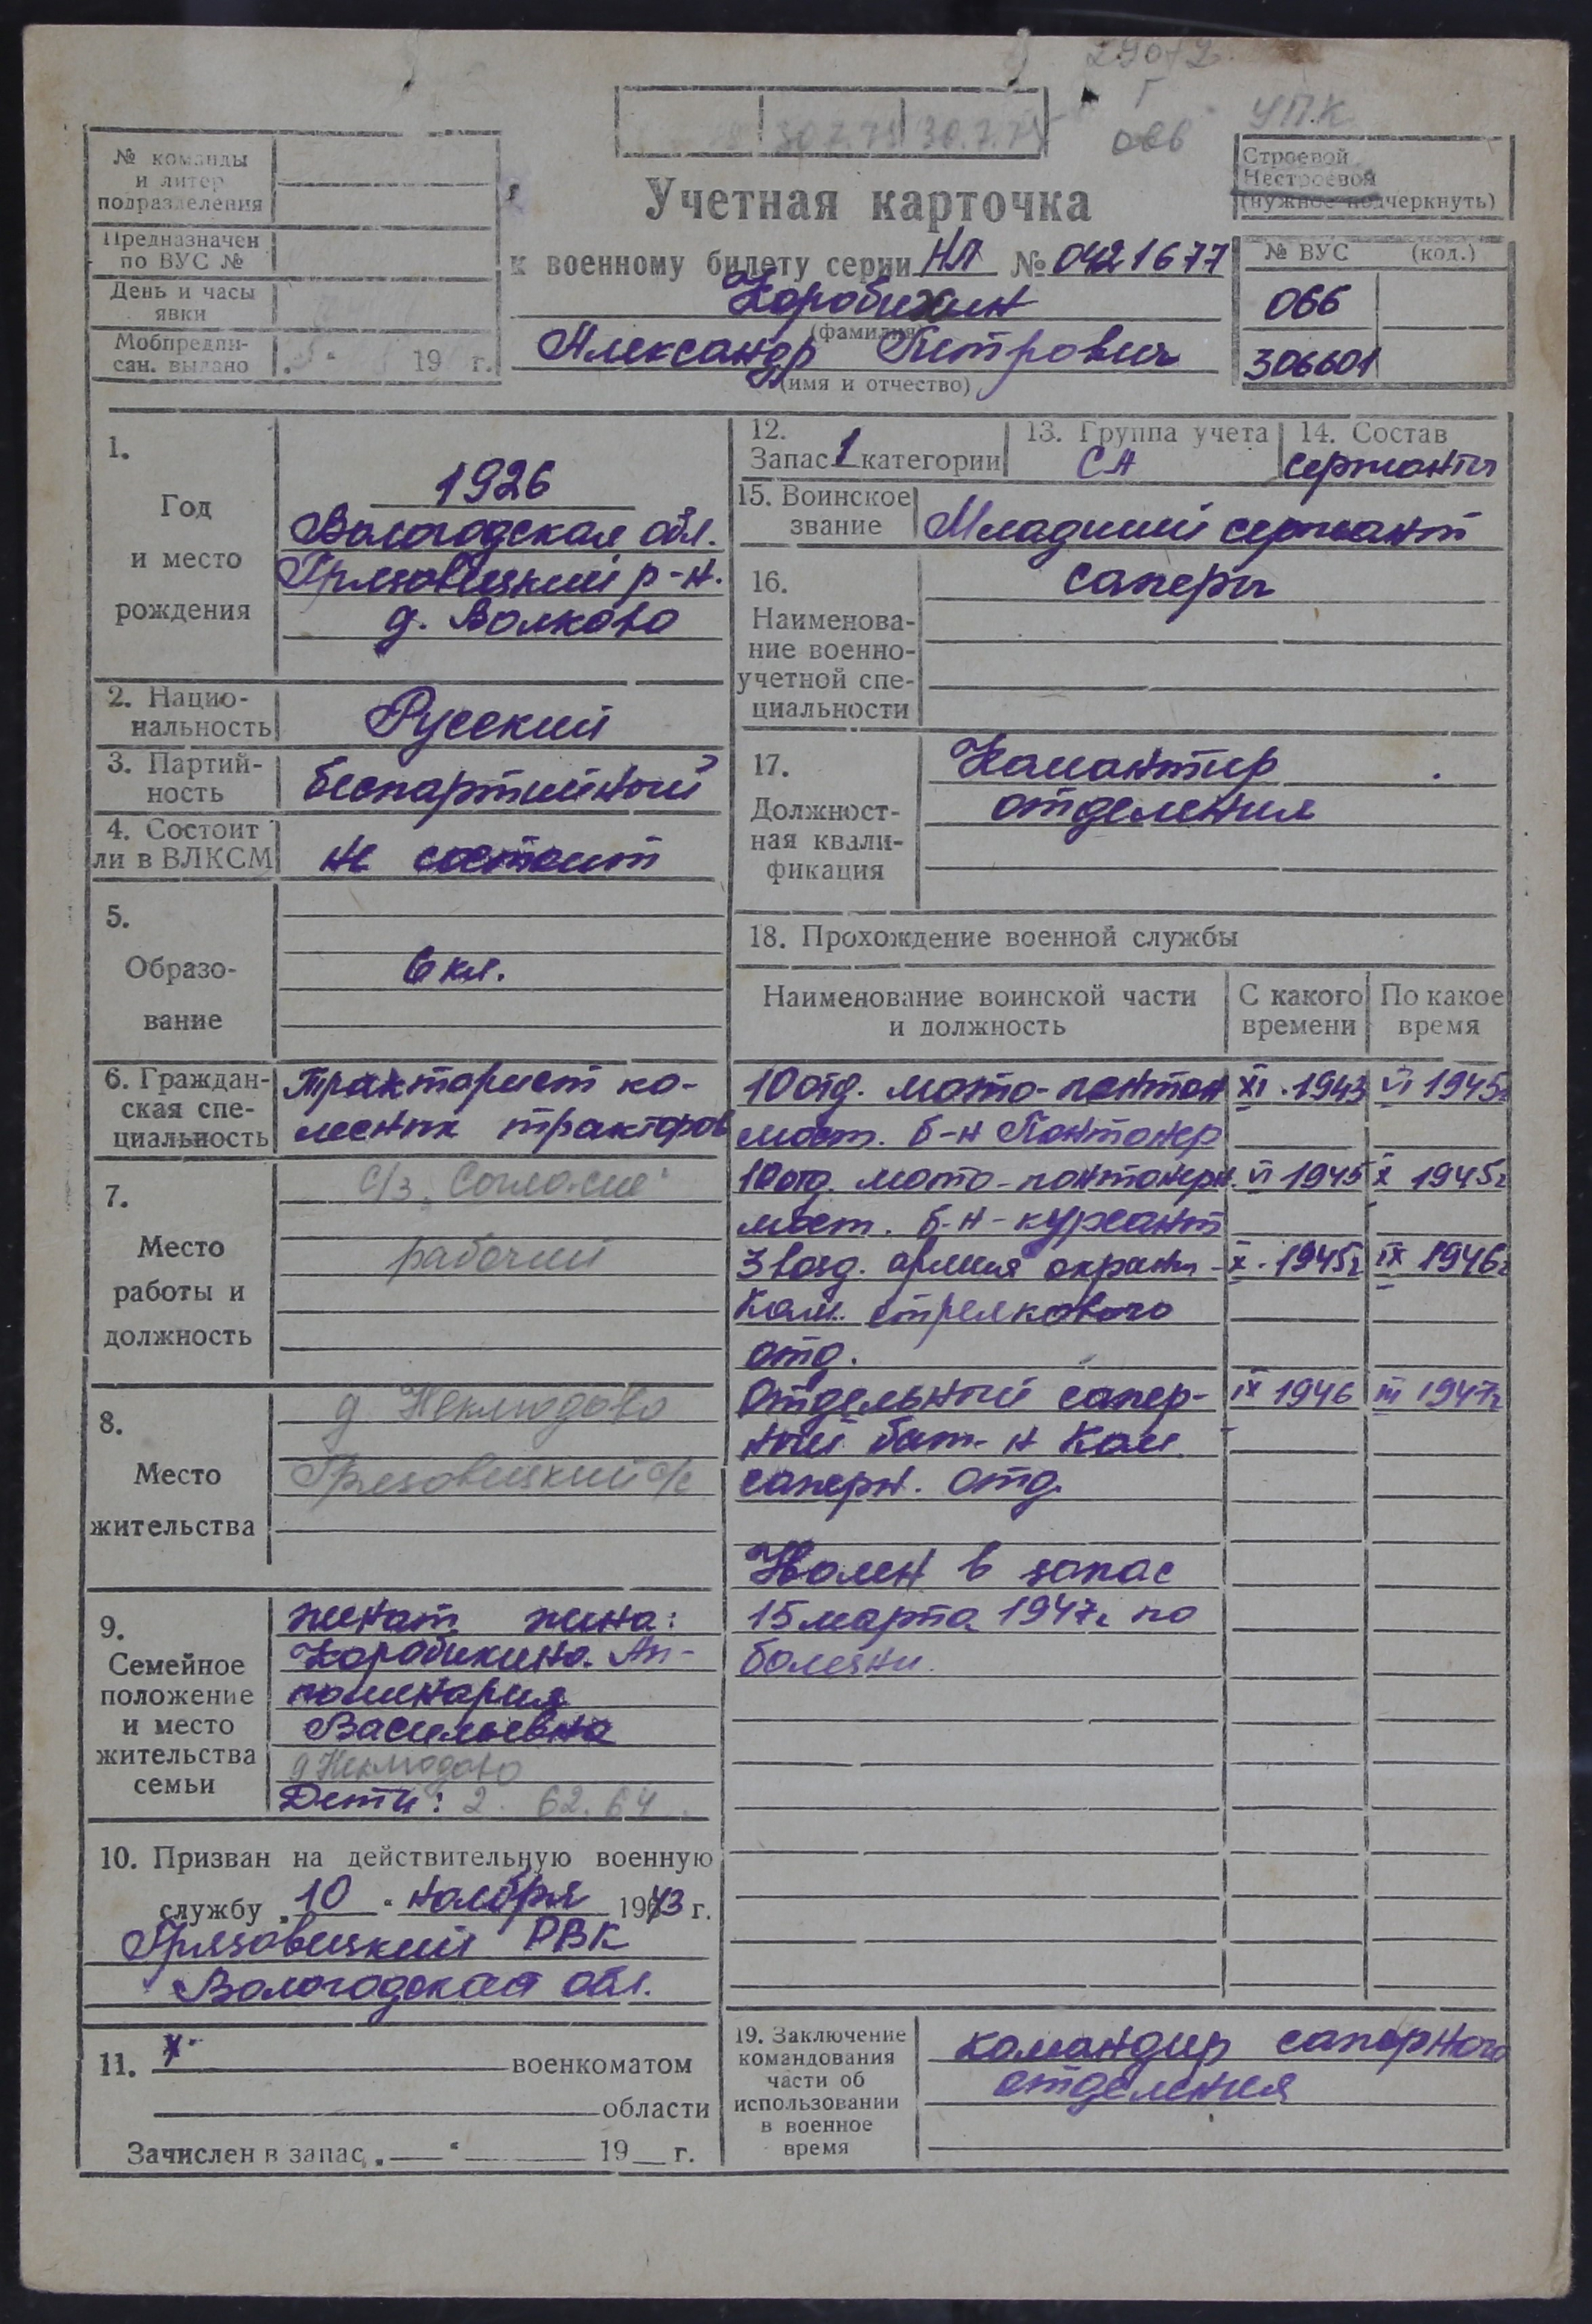 УПК
30.7.75
№ команды
и литер
подразделения
Предназначен
по ВУС №
День и часы
явки
Мобпредпи-
сан. выдано 19 г.
Учетная карточка
к военному билету серии НЛ № 0421677
Коробихин
(фамилия)
Александр Петрович
(имя и отчество)
Строевой
Нестроевой
(нужное подчеркнуть)
№ ВУС (код.)
066
306601
1.
Год
и место
рождения
1926
Вологодская обл.
Грязовецкий р-н.
д. Волково
2. Нацио-
нальность
Русский
3. Партий-
ность
беспартийный
4. Состоит
ли в ВЛКСМ
не состоит
5.
Образо-
вание
6 кл.
6. Граждан-
ская спе-
циальность
Тракторист ко-
лесных тракторов
7.
Место
работы и
должность
с/з „Согласие"
рабочий
8.
Место
жительства
д Неклюдово
Грязовецкий с/с
9.
Семейное
положение
и место
жительства
семьи
женат жена:
Коробихина Ап-
полинария
Васильевна
д Неклюдово
Дети: 2. 62. 64.
10. Призван на действительную военную
службу „10" ноября 1943 г.
Грязовецкий РВК
Вологодская обл.
11. военкоматом
области
Зачислен в запас „ " 19 г.
12.
Запас 1 категории
13. Группа учета
СА
14. Состав
сержанты
15. Воинское
звание
Младший сержант
16.
Наименова-
ние военно-
учетной спе-
циальности
саперы
17.
Должност-
ная квали-
фикация
Командир
отделения
18. Прохождение военной службы
Наименование воинской части
и должность
С какого
времени
По какое
время
10 отд. мото-понтон XI. 1943 VI 1945г
мост. б-н Понтонер
10 отд. мото-понтонерн. VI 1945 X 1945г
мост. б-н - курсант
3 возд. армия охраны - X. 1945г IX 1946г
Ком. стрелкового
отд.
Отдельный сапер- IX 1946 III 1947г
ный бат-н Ком
саперн. отд.
Уволен в запас
15 марта 1947г по
болезни.
19. Заключение
командования
части об
использовании
в военное
время
командир саперного
отделения